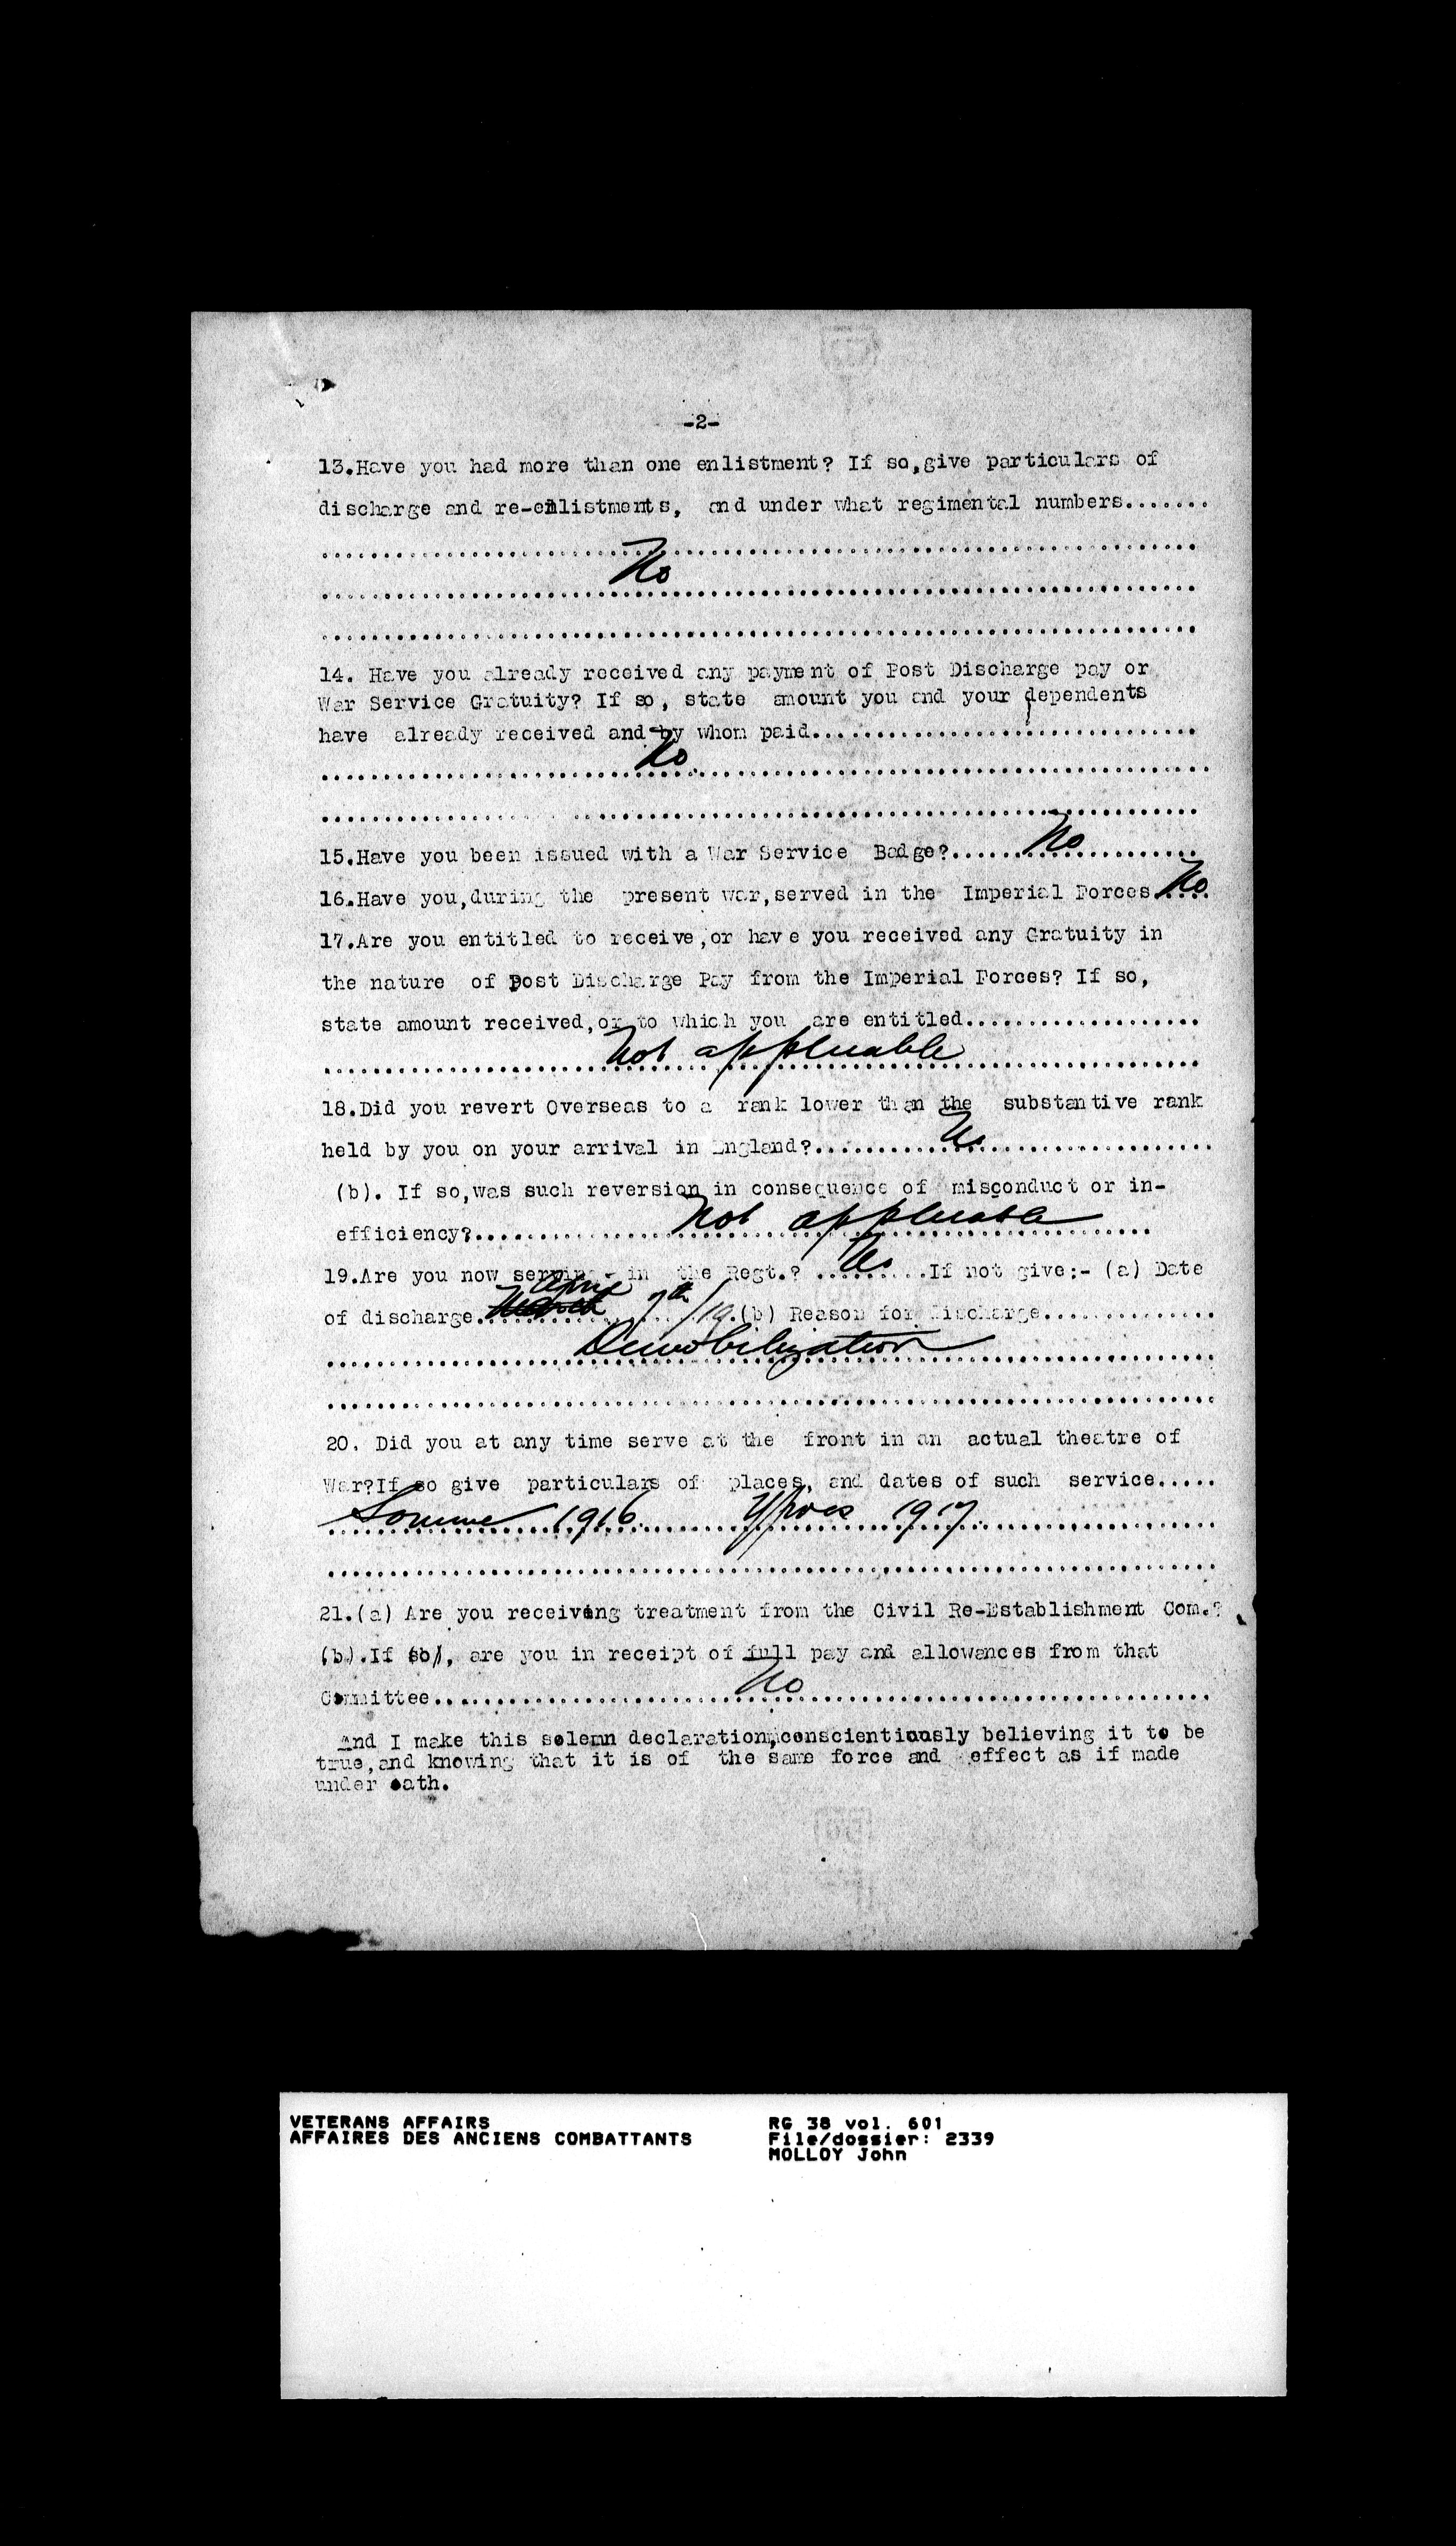 -2-
13.Have you had more than one enlistment? If so,give particulars of
discharge and re-enlistments, and under what regimental numbers.......
No
14. Have you already received any payment of Post Discharge pay or
War Service Gratuity? If so, state amount you and your dependents
have already received and by whom paid...............................
No
15.Have you been issued with a War Service Badge?....No..........
16.Have you,during the present war,served in the Imperial Forces.No
17.Are you entitled to receive,or have you received any Gratuity in
the nature of Post Discharge Pay from the Imperial Forces? If so,
state amount received,or to which you are entitled...................
Not applicable
18.Did you revert Overseas to a rank lower than the substantive rank
held by you on your arrival in England?..........No..................
(b). If so,was such reversion in consequence of misconduct or in-
efficiency?................Not applicable....
19.Are you now serving in the Regt.? ..No.....If not give:- (a) Date
April
of discharge.March 7th/19.(b) Reason for Discharge..............
Demobilization
20. Did you at any time serve at the front in an actual theatre of
War?If so give particulars of places, and dates of such service.....
Somme 1916 Ypres 1917
21.(a) Are you receiving treatment from the Civil Re-Establishment Com.?
(b).If so, are you in receipt of full pay and allowances from that
Committee........................No.................................
And I make this solemn declaration,conscientiously believing it to be
true,and knowing that it is of the same force and effect as if made
under oath.
VETERANS AFFAIRS
AFFAIRES DES ANCIENS COMBATTANTS
RG 38 vol. 601
File/dossier: 2339
MOLLOY John